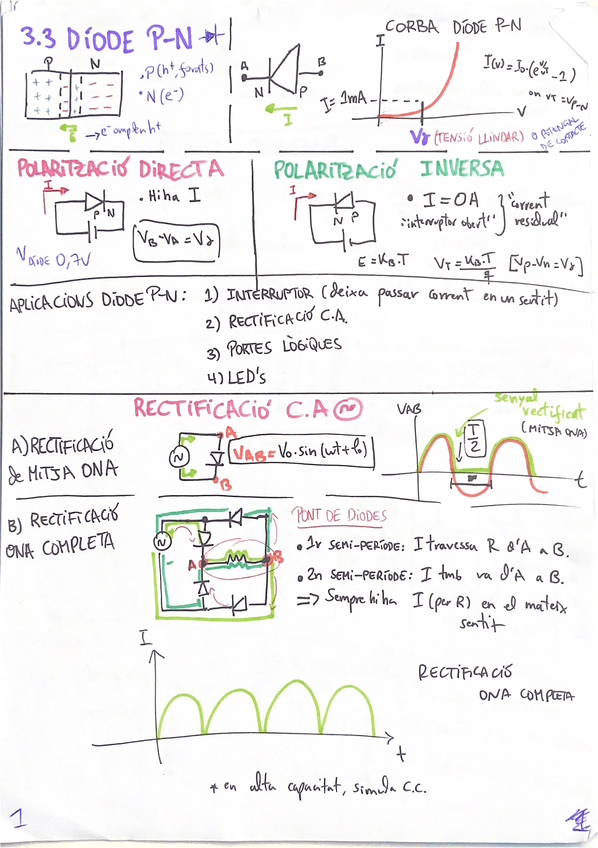 3.3 DÍODE P-N
P N
. P (h⁺, forats)
• N (e⁻)
→ e⁻ omplen h⁺
A B
N P
I
CORBA DÍODE P-N
I
I(v)=I₀·(e^(v/vT) -1)
on VT = VP-N
I=1mA
V
Vγ (TENSIÓ LLINDAR) O POTENCIAL DE CONTACTE
POLARITZACIÓ DIRECTA
I
P N
• Hi ha I
VB-VA=Vγ
VDÍODE 0,7V
POLARITZACIÓ INVERSA
I
N P
• I=0A
"interruptor obert"
"corrent
residual"
E=KB·T VT=KB·T/q [VP-Vn=Vγ]
APLICACIONS DÍODE P-N: 1) INTERRUPTOR (deixa passar corrent en un sentit)
2) RECTIFICACIÓ C.A.
3) PORTES LÒGIQUES
4) LED's
RECTIFICACIÓ C.A
A) RECTIFICACIÓ
de MITJA ONA
A
B
VAB=V₀·sin(ωt+φ₀)
VAB
senyal
rectificat
(MITJA ONA)
T/2
t
B) RECTIFICACIÓ
ONA COMPLETA
A B
PONT DE DÍODES
• 1r SEMI-PERÍODE: I travessa R d'A a B.
• 2n SEMI-PERÍODE: I tmb va d'A a B.
=> Sempre hi ha I (per R) en el mateix
sentit
I
t
RECTIFICACIÓ
ONA COMPLETA
* en alta capacitat, simula C.C.
1